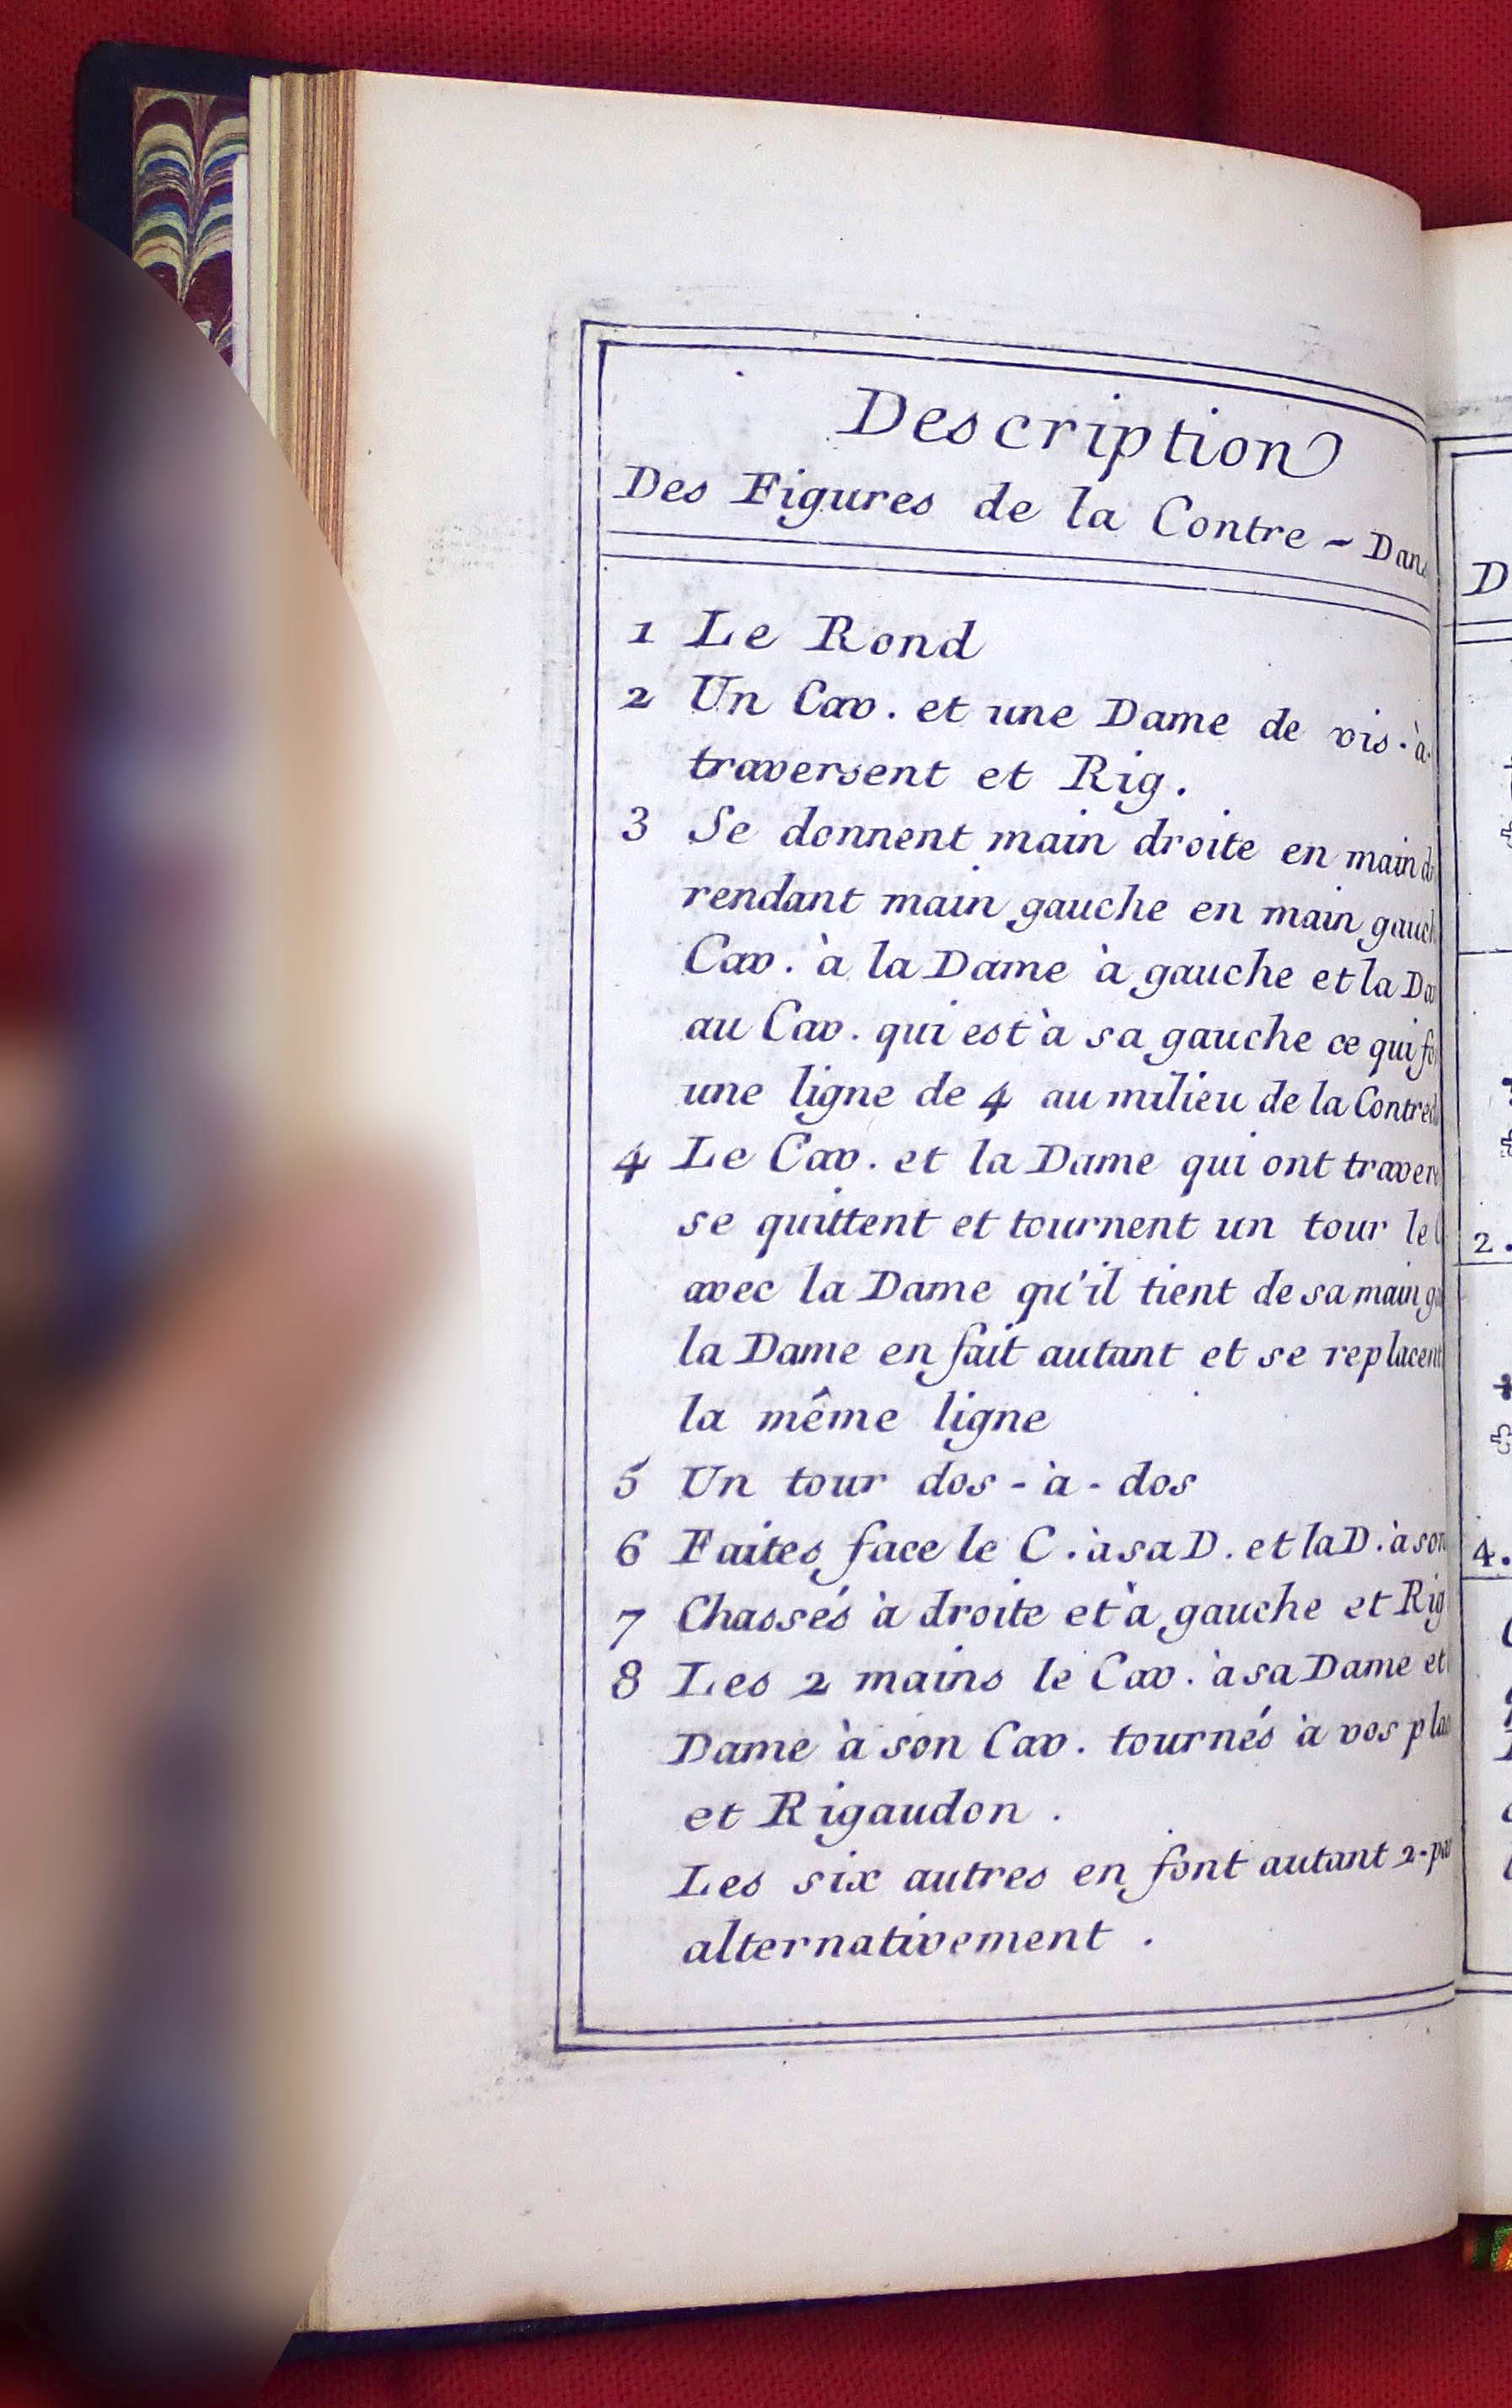 Description
Des Figures de la Contre -
1 Le Rond
2 Un Cav. et une Dame de vis-à-
traversent et Rig.
3 Se donnent main droite en main
rendant main gauche en main
Cav. à la Dame à gauche et la
au Cav. qui est à sa gauche ce qui
une ligne de 4 au milieu de la
4 Le Cav. et la Dame qui ont
se quittent et tournent un tour le
avec la Dame qu'il tient de sa main
la Dame en fait autant et se replacent
la même ligne
5 Un tour dos-à-dos
6 Faites face le C. à sa D. et la D. à son
7 Chassés à droite et à gauche et Rig
8 Les 2 mains le Cav. à sa Dame et
Dame à son Cav. tournés à vos
et Rigaudon.
Les six autres en font autant 2-
alternativement.
D
2.
4.